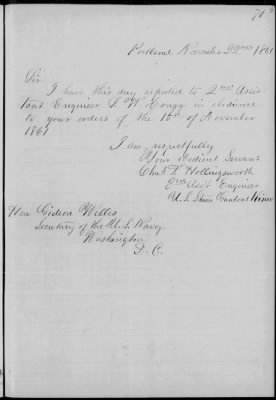 70
Portland November 22nd 1861
Sir
I have this day reported to 2nd Assis
tant Engineer J. W. in obedience
to your orders of the 18th of November
1861
I am respectfully
Your obedient Servant
Chas L Hollingsworth
3rd Ass't Engineer
U.S. Steam Gunboat Kineo
Hon Gideon Welles
Secretary of the U.S. Navy
Washington
D.C.